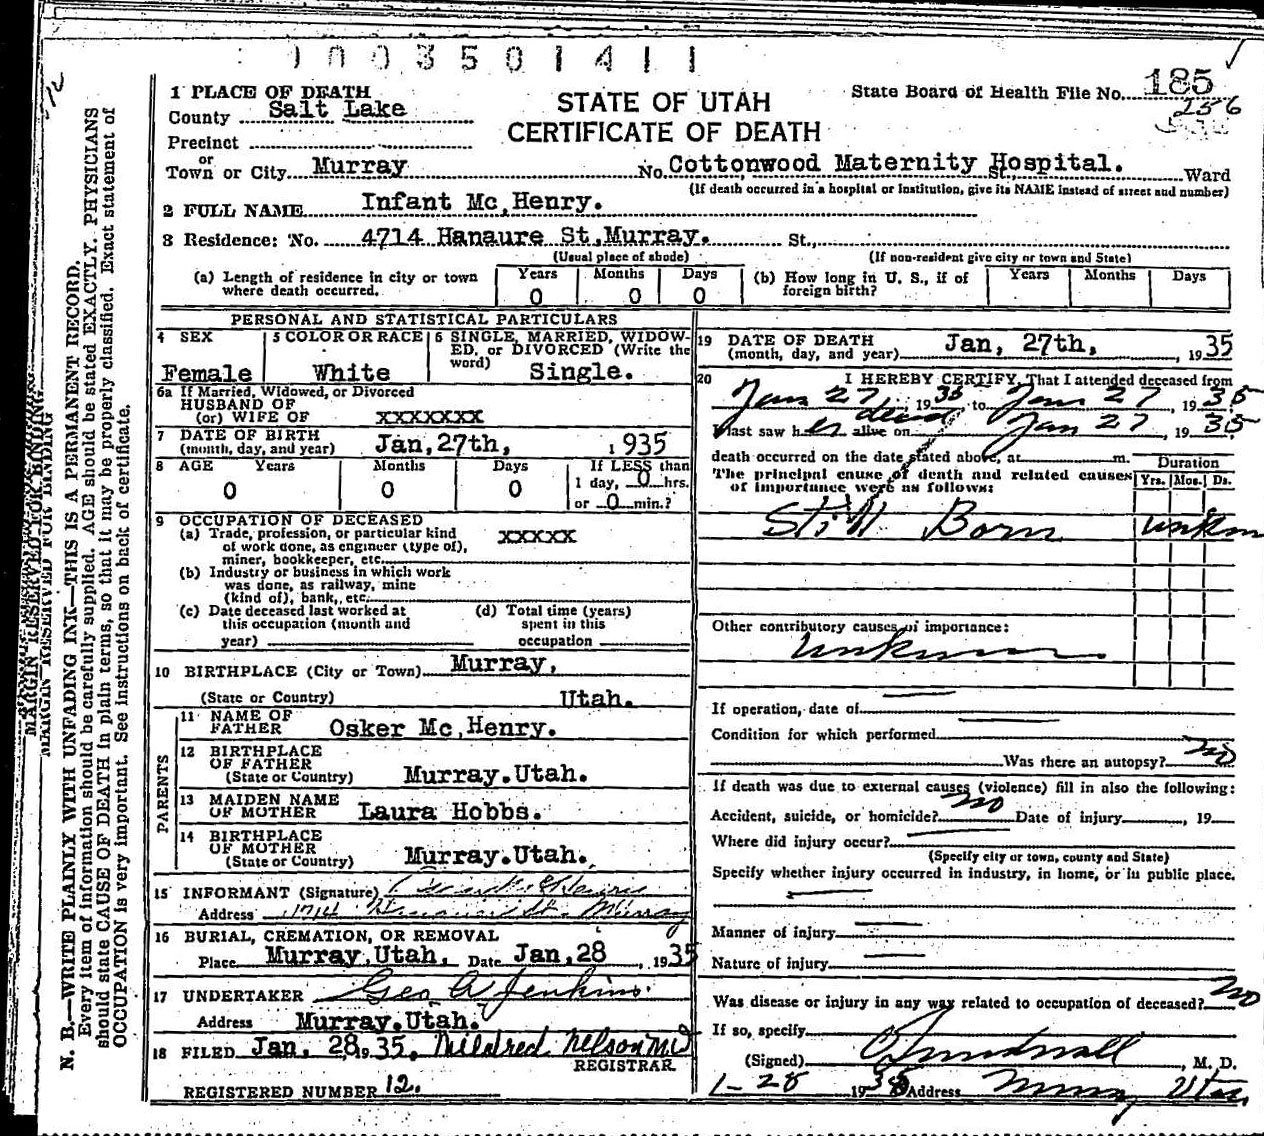 1003501411
1 PLACE OF DEATH
County Salt Lake
STATE OF UTAH
CERTIFICATE OF DEATH
State Board of Health File No. 185
256
Precinct
or
Town or City Murray No. Cottonwood Maternity Hospital. St., Ward
(If death occurred in a hospital or institution, give its NAME instead of street and number)
2 FULL NAME Infant Mc,Henry.
3 Residence: No. 4714 Hanaure St,Murray. St.,
(Usual place of abode) (If non-resident give city or town and State)
(a) Length of residence in city or town where death occurred. Years 0 Months 0 Days 0
(b) How long in U. S., if of foreign birth? Years Months Days
PERSONAL AND STATISTICAL PARTICULARS
4 SEX Female
5 COLOR OR RACE White
6 SINGLE, MARRIED, WIDOWED, or DIVORCED (Write the word) Single.
6a If Married, Widowed, or Divorced
HUSBAND OF
(or) WIFE OF XXXXXXX
7 DATE OF BIRTH
(month, day, and year) Jan,27th, 1935
8 AGE Years 0 Months 0 Days 0
If LESS than
1 day, 0 hrs.
or 0 min.?
9 OCCUPATION OF DECEASED
(a) Trade, profession, or particular kind XXXXX
of work done, as engineer (type of),
miner, bookkeeper, etc.
(b) Industry or business in which work
was done, as railway, mine
(kind of), bank, etc.
(c) Date deceased last worked at
this occupation (month and
year)
(d) Total time (years)
spent in this
occupation
10 BIRTHPLACE (City or Town) Murray,
(State or Country) Utah.
PARENTS
11 NAME OF
FATHER Osker Mc,Henry.
12 BIRTHPLACE
OF FATHER
(State or Country) Murray.Utah.
13 MAIDEN NAME
OF MOTHER Laura Hobbs.
14 BIRTHPLACE
OF MOTHER
(State or Country) Murray.Utah.
15 INFORMANT (Signature)
Address St. Murray
16 BURIAL, CREMATION, OR REMOVAL
Place Murray,Utah, Date Jan,28, 1935
17 UNDERTAKER Geo A Jenkins.
Address Murray.Utah.
18 FILED Jan, 28, 35, Mildred Nelson M.D
REGISTRAR
REGISTERED NUMBER 12.
19 DATE OF DEATH
(month, day, and year) Jan, 27th, , 1935
20 I HEREBY CERTIFY, That I attended deceased from
Jan 27, 1935 to Jan 27, 1935
dead
I last saw her alive on Jan 27, 1935
death occurred on the date stated above, at m.
The principal cause of death and related causes
of importance were as follows:
Duration
Yrs. Mos. Ds.
Still Born unkn
Other contributory causes of importance:
unknown
If operation, date of
Condition for which performed
Was there an autopsy? no
If death was due to external causes (violence) fill in also the following:
Accident, suicide, or homicide? no Date of injury , 19
Where did injury occur?
(Specify city or town, county and State)
Specify whether injury occurred in industry, in home, or in public place.
Manner of injury
Nature of injury
Was disease or injury in any way related to occupation of deceased? no
If so, specify
(Signed) , M. D.
1-28 1935 Address Murray Utah.
MARGIN RESERVED FOR BINDING
MARGIN RESERVED FOR BINDING
N. B.—WRITE PLAINLY WITH UNFADING INK—THIS IS A PERMANENT RECORD.
Every item of information should be carefully supplied. AGE should be stated EXACTLY. PHYSICIANS
should state CAUSE OF DEATH in plain terms, so that it may be properly classified. Exact statement of
OCCUPATION is very important. See instructions on back of certificate.